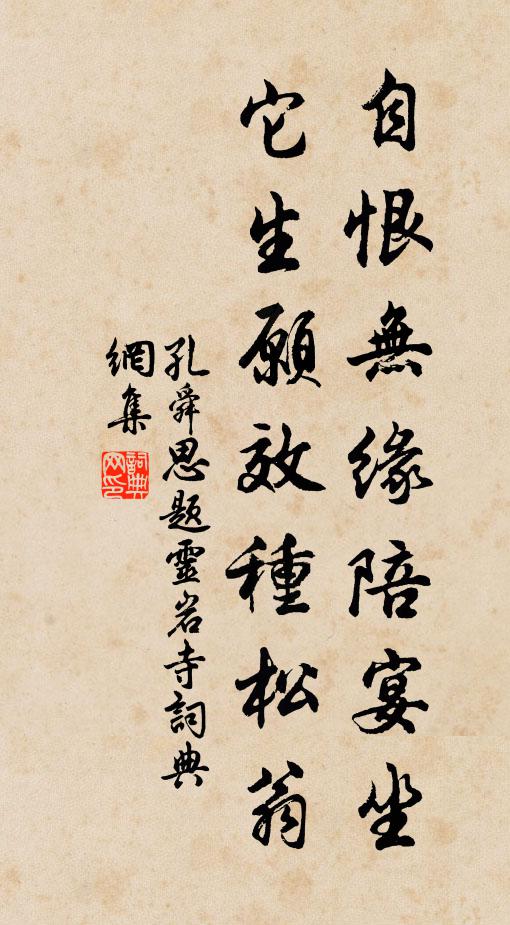 自恨無緣陪宴坐
它生願效種松翁
孔舜思題靈岩寺詞典
網集
詞典网印